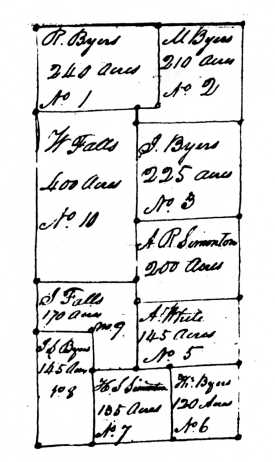 R. Byers
240 Acres
No 1
M Byers
210 Acres
No 2
W Falls
400 Acres
No 10
J. Byers
225 Acres
No 3
A R Simonton
200 Acres
J Falls
170 Acres
No 9
A. White
145 Acres
No 5
J S Byers
145 Acres
No 8
H S Simonton
135 Acres
No 7
Wm Byers
120 Acres
No 6